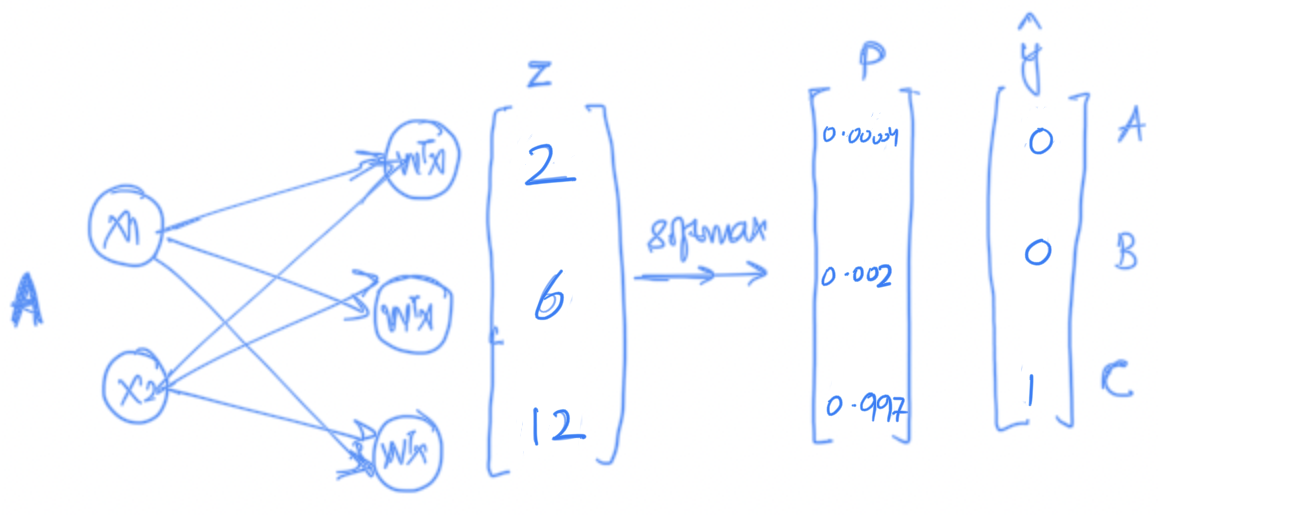 Z
P
ŷ
A
x1
x2
WᵀX
WᵀX
WᵀX
2
6
12
softmax
0.00004
0.002
0.997
0
0
1
A
B
C